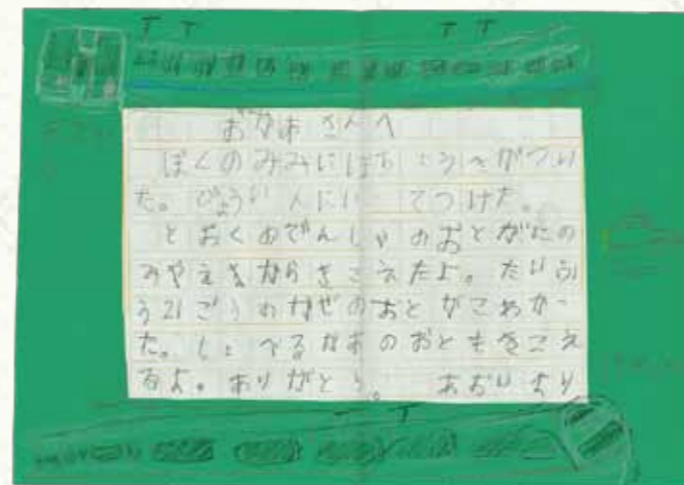 おかあさんへ
ぼくのみみにほちょうきがつい
た。びょういんにいってつけた。
とおくのでんしゃのおとがにの
みやえきからきこえたよ。たいふ
う21ごうのかぜのおとがこわかっ
た。しょべるかあのおともきこえ
るよ。ありがとう。 あおいより